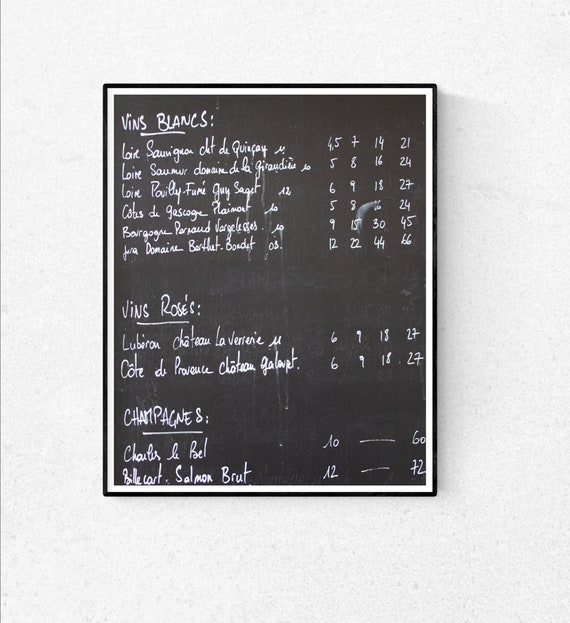 VINS BLANCS:
Loire Sauvignon cht de Quinçay 11 4,5 7 14 21
Loire Saumur domaine de la Giraudière 10 5 8 16 24
Loire Pouilly-Fumé Guy Saget 12 6 9 18 27
Côtes de Gascogne Plaimont 10 5 8 16 24
Bourgogne Pernand Vergelesses. 10 9 15 30 45
Jura Domaine Berthet-Bondet 03. 12 22 44 66
VINS ROSÉS:
Lubéron château La Verrerie 11 6 9 18 27
Côte de Provence château Galoupet. 6 9 18 27
CHAMPAGNES:
Charles le Bel 10 — 60
Billecart. Salmon Brut 12 — 72